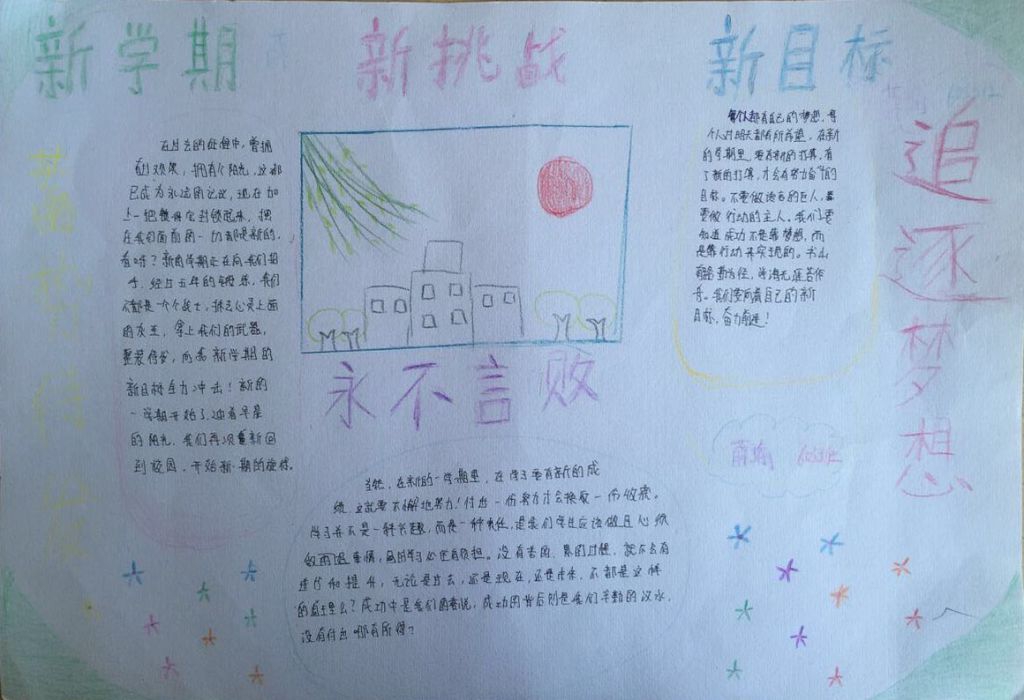 新学期 新挑战 新目标
在过去的征程中，曾拥
有过欢笑，拥有个阳光，这都
已成为永远的记忆，现在加
上一把锁将它封锁起来，摆
在我们面前的一切都是新的，
有呀？新的学期正在向我们招
手，经过五年的锻炼，我们
都是一个个战士，抹去心灵上面
的灰尘，拿上我们的武器，
整装待发，向着新学期的
新目标全力冲击！新的
一学期开始了，迎着早晨
的阳光，我们再次重新回
到校园，开始新一期的旋律。
永不言败
每个人都有自己的梦想，每
个人对明天都有所希望，在新
的学期里，要有新的打算，有
了新的打算，才会有努力奋斗的
目标。不要做语言的巨人，要
要做行动的主人。我们要
知道成功不是靠梦想，而
是靠行动来实现的。书山
有路勤为径，学海无涯苦作
舟。我们要向着自己的新
目标，奋力前进！
追逐梦想
当然，在新的一学期里，在学习要有新的成
绩，这就要不懈地努力！付出一份努力才会换取一份收获。
学习并不是一种兴趣，而是一种责任，是我们学生应该做且必须
做的事情，没有苦的、累的过程，就不会有
进行和提升，无论是过去，还是现在，还是未来，不都是这样
的道理么？成功中是我们的喜悦，成功的背后则是我们辛勤的汗水，
没有付出哪有所得？